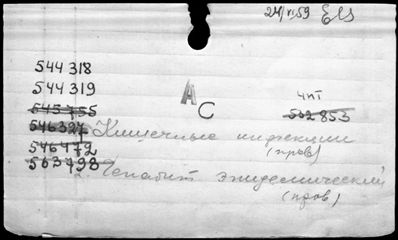 24/VI 59
544 318
544 319
A
C
545 755
чит
502 853
546 327 Кишечные инфекции
(пров)
546 472
563 793 Гепатит эпидемический
(пров)